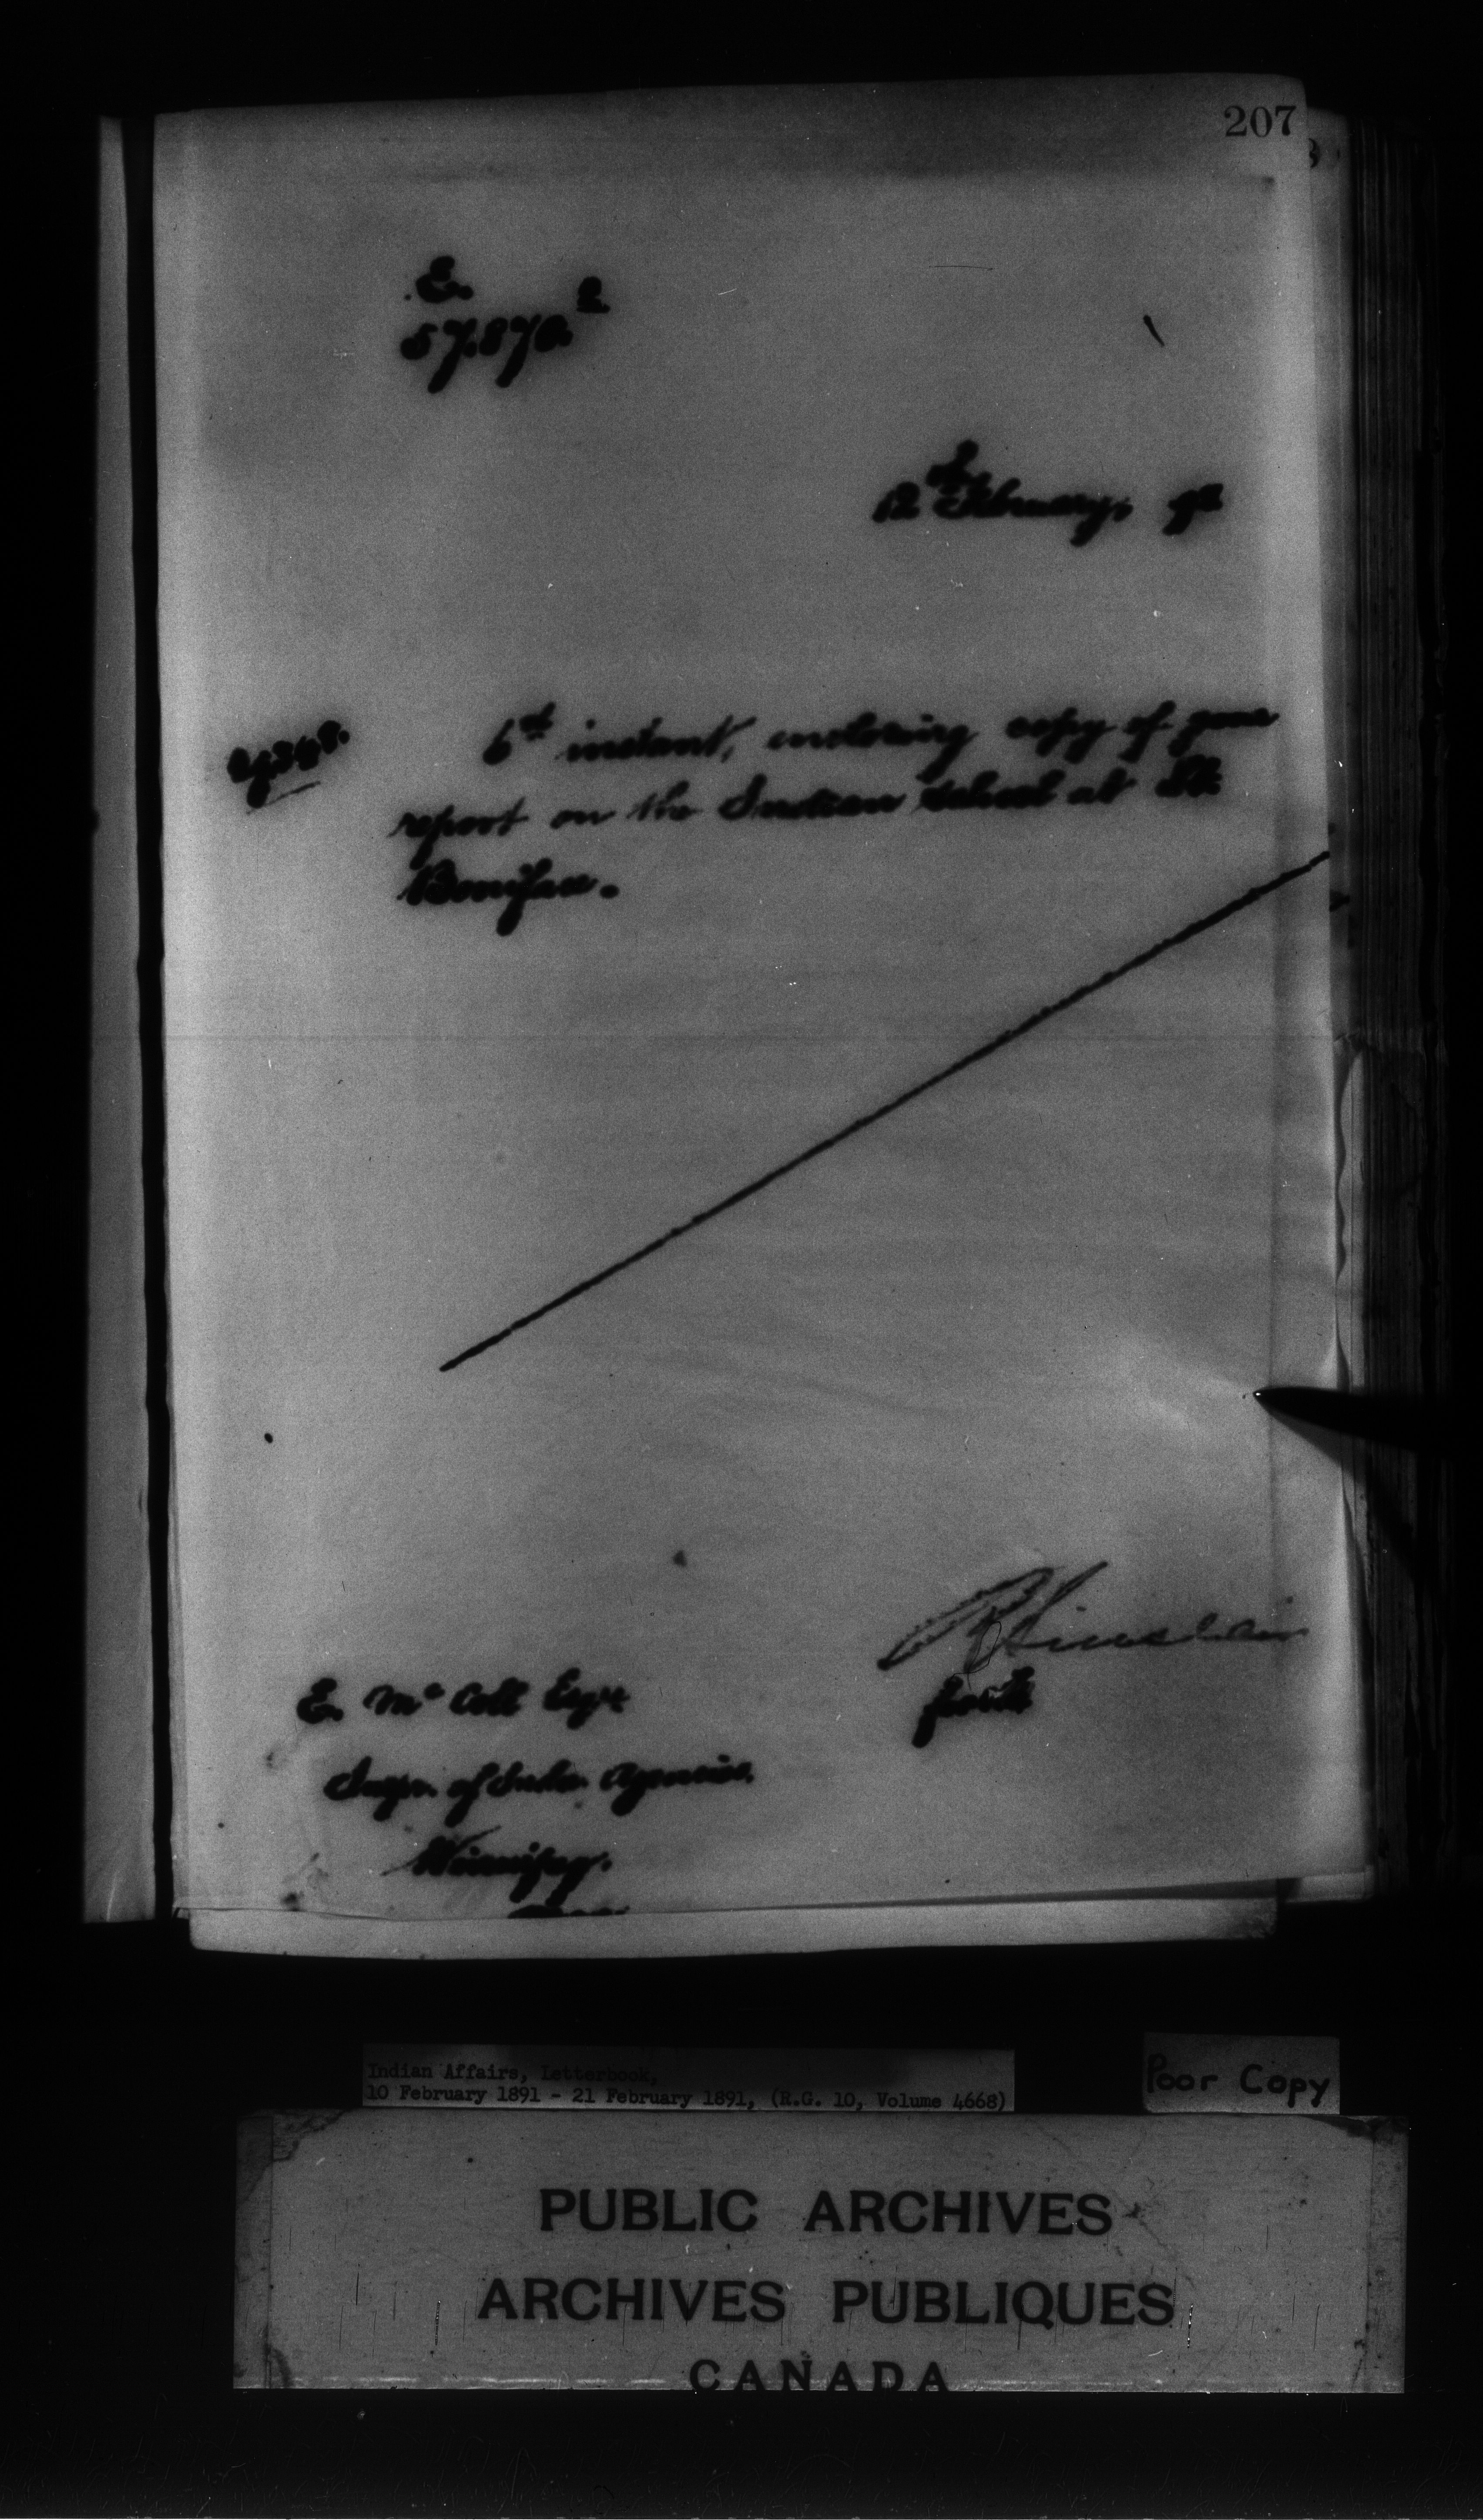 207
E.
57.870.2
12th February, 91
6th instant, enclosing copy of your
report on the Indian School at St.
Boniface.
R Sinclair
for D
E. Mc Coll Esqre
Inspr. of Indn. Agencies.
Winnipeg.
Indian Affairs, Letterbook,
10 February 1891 - 21 February 1891, (R.G. 10, Volume 4668)
Poor Copy
PUBLIC ARCHIVES
ARCHIVES PUBLIQUES
CANADA